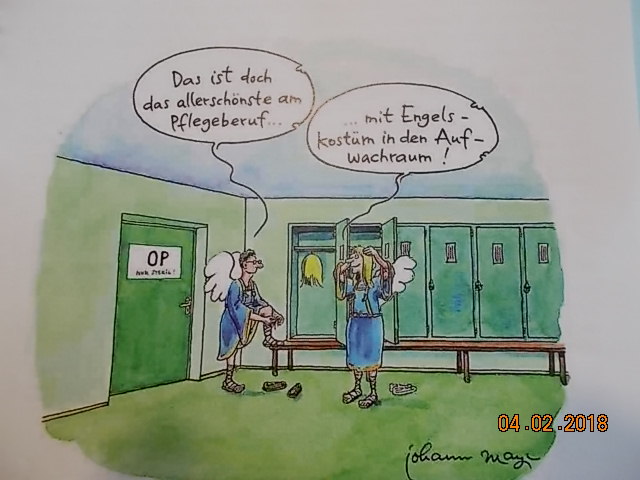 Das ist doch
das allerschönste am
Pflegeberuf...
... mit Engels-
kostüm in den Auf-
wachraum!
OP
NUR STERIL!
04.02.2018
johann mayr